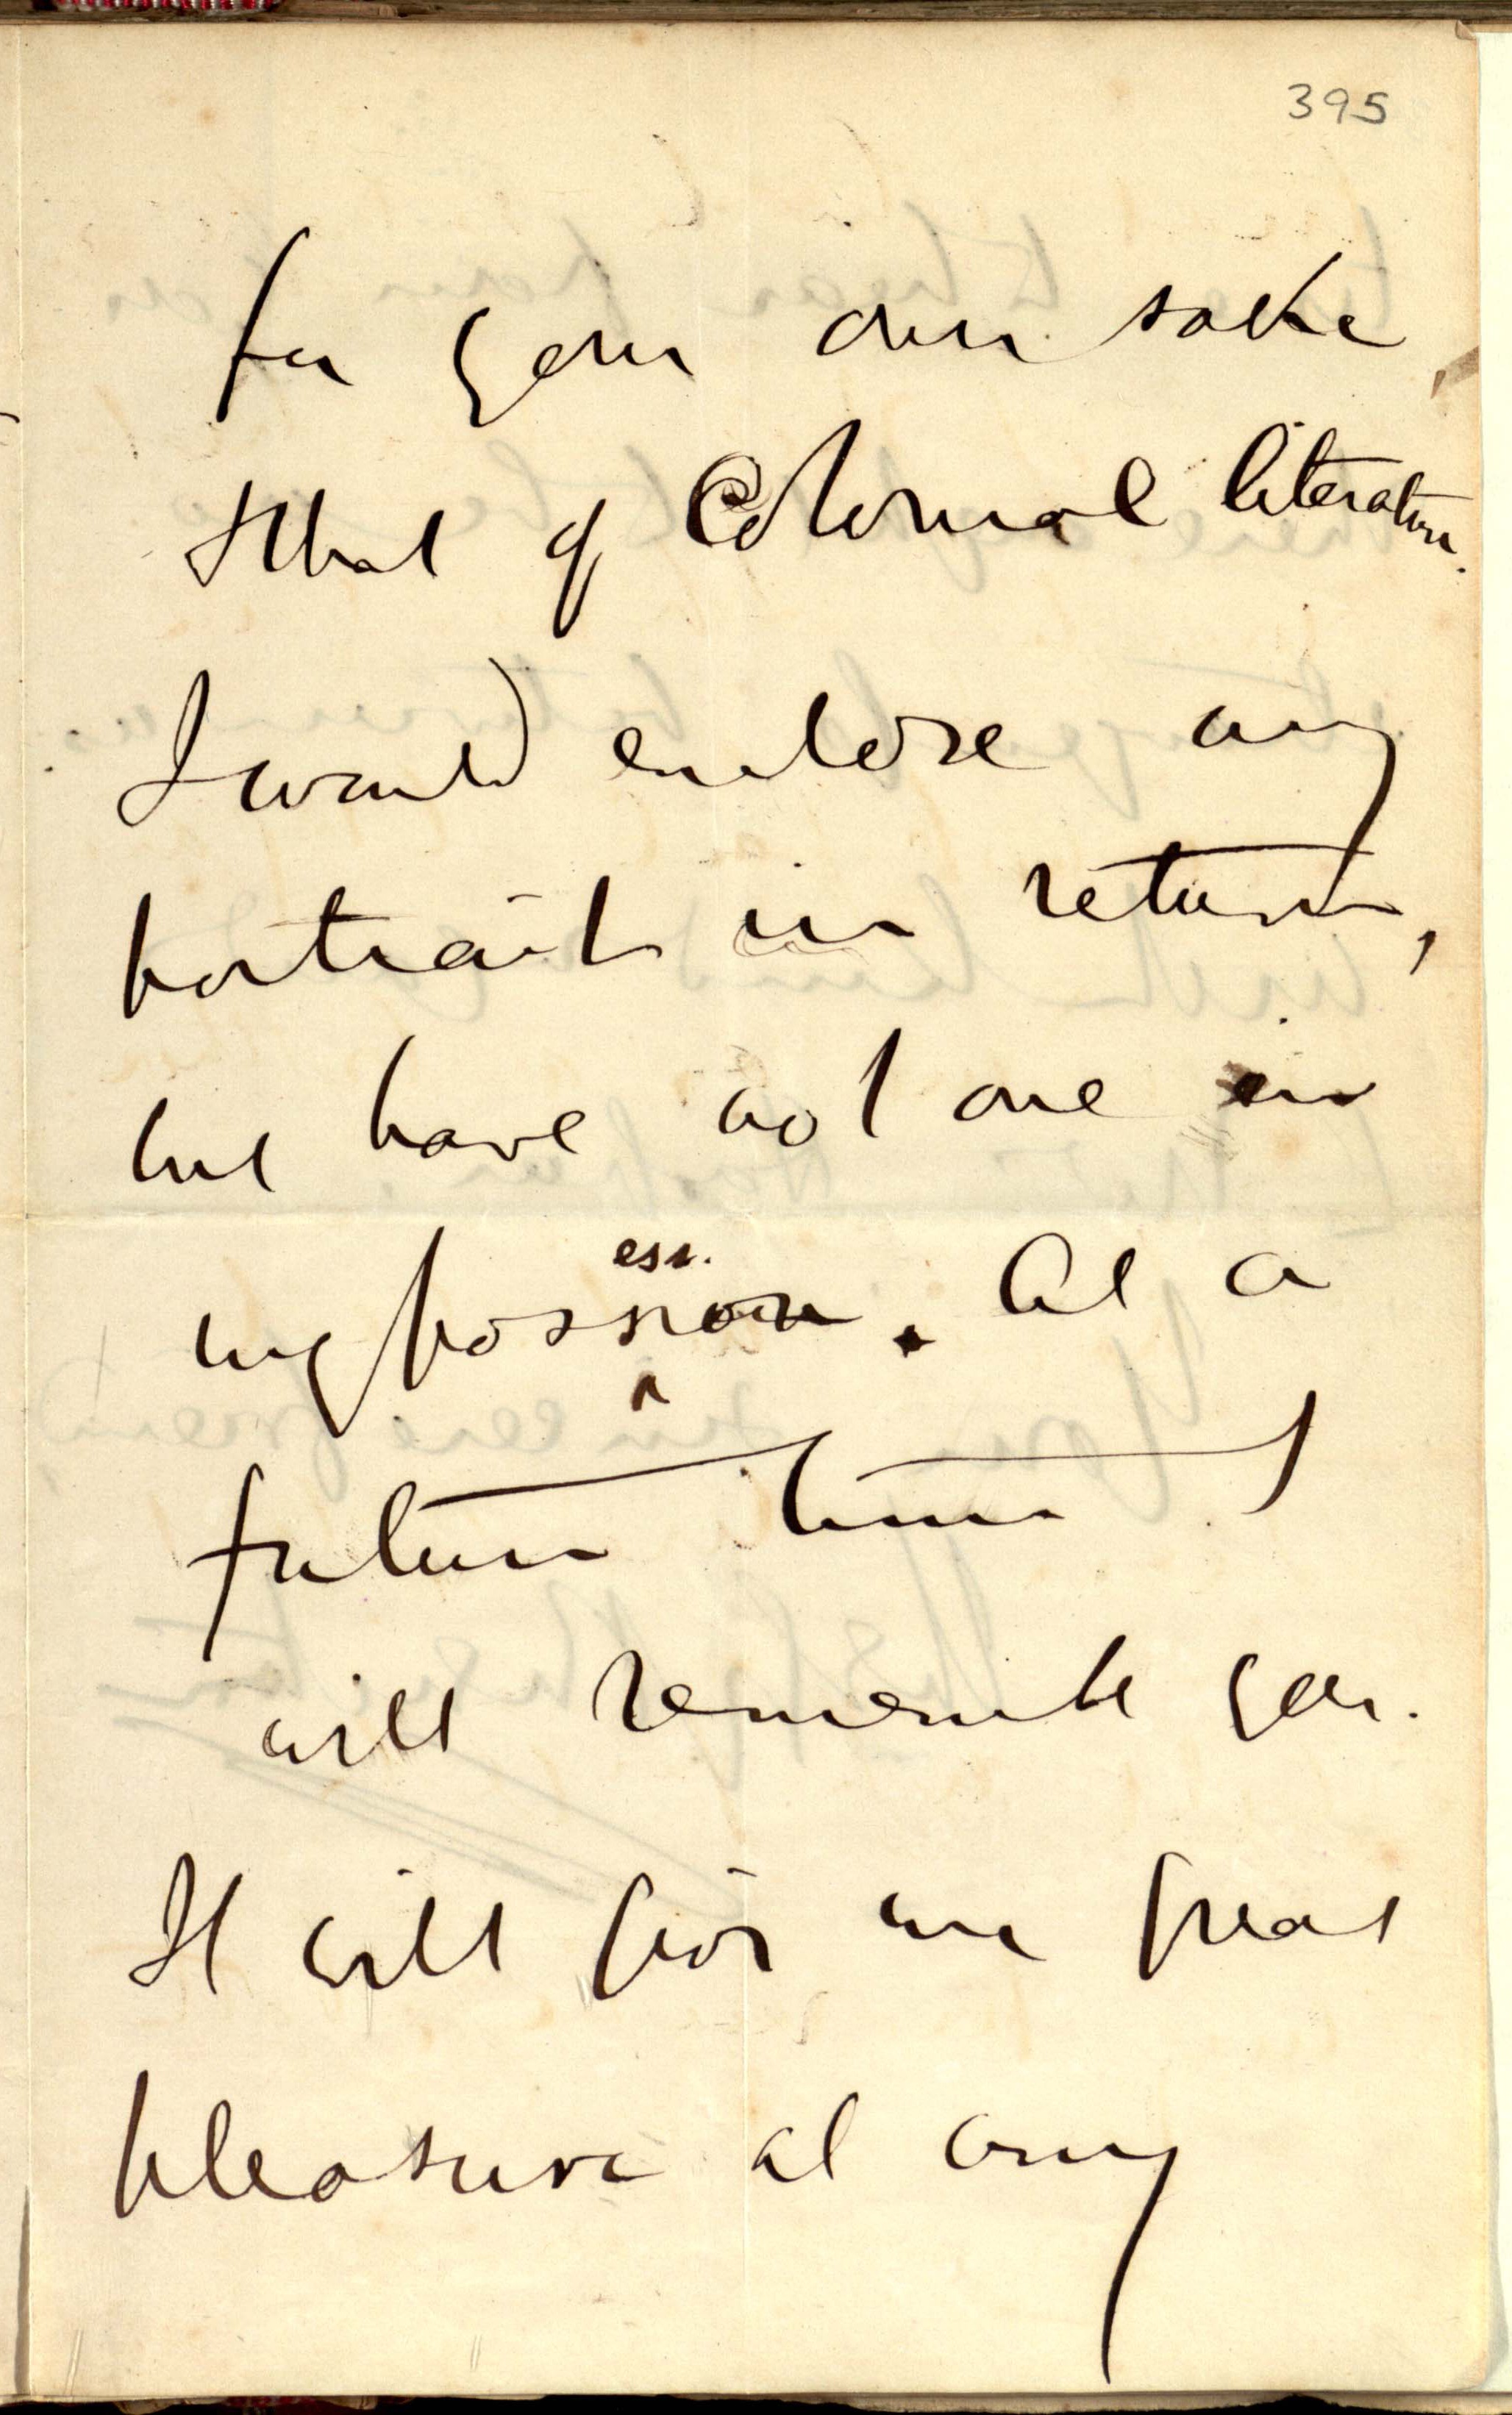 395
for your own sake,
& that of Colonial literature.
I would enclose my
portrait in return,
but have not one in
my possession. At a
future time I
will remember you.
It will give me great
pleasure at any